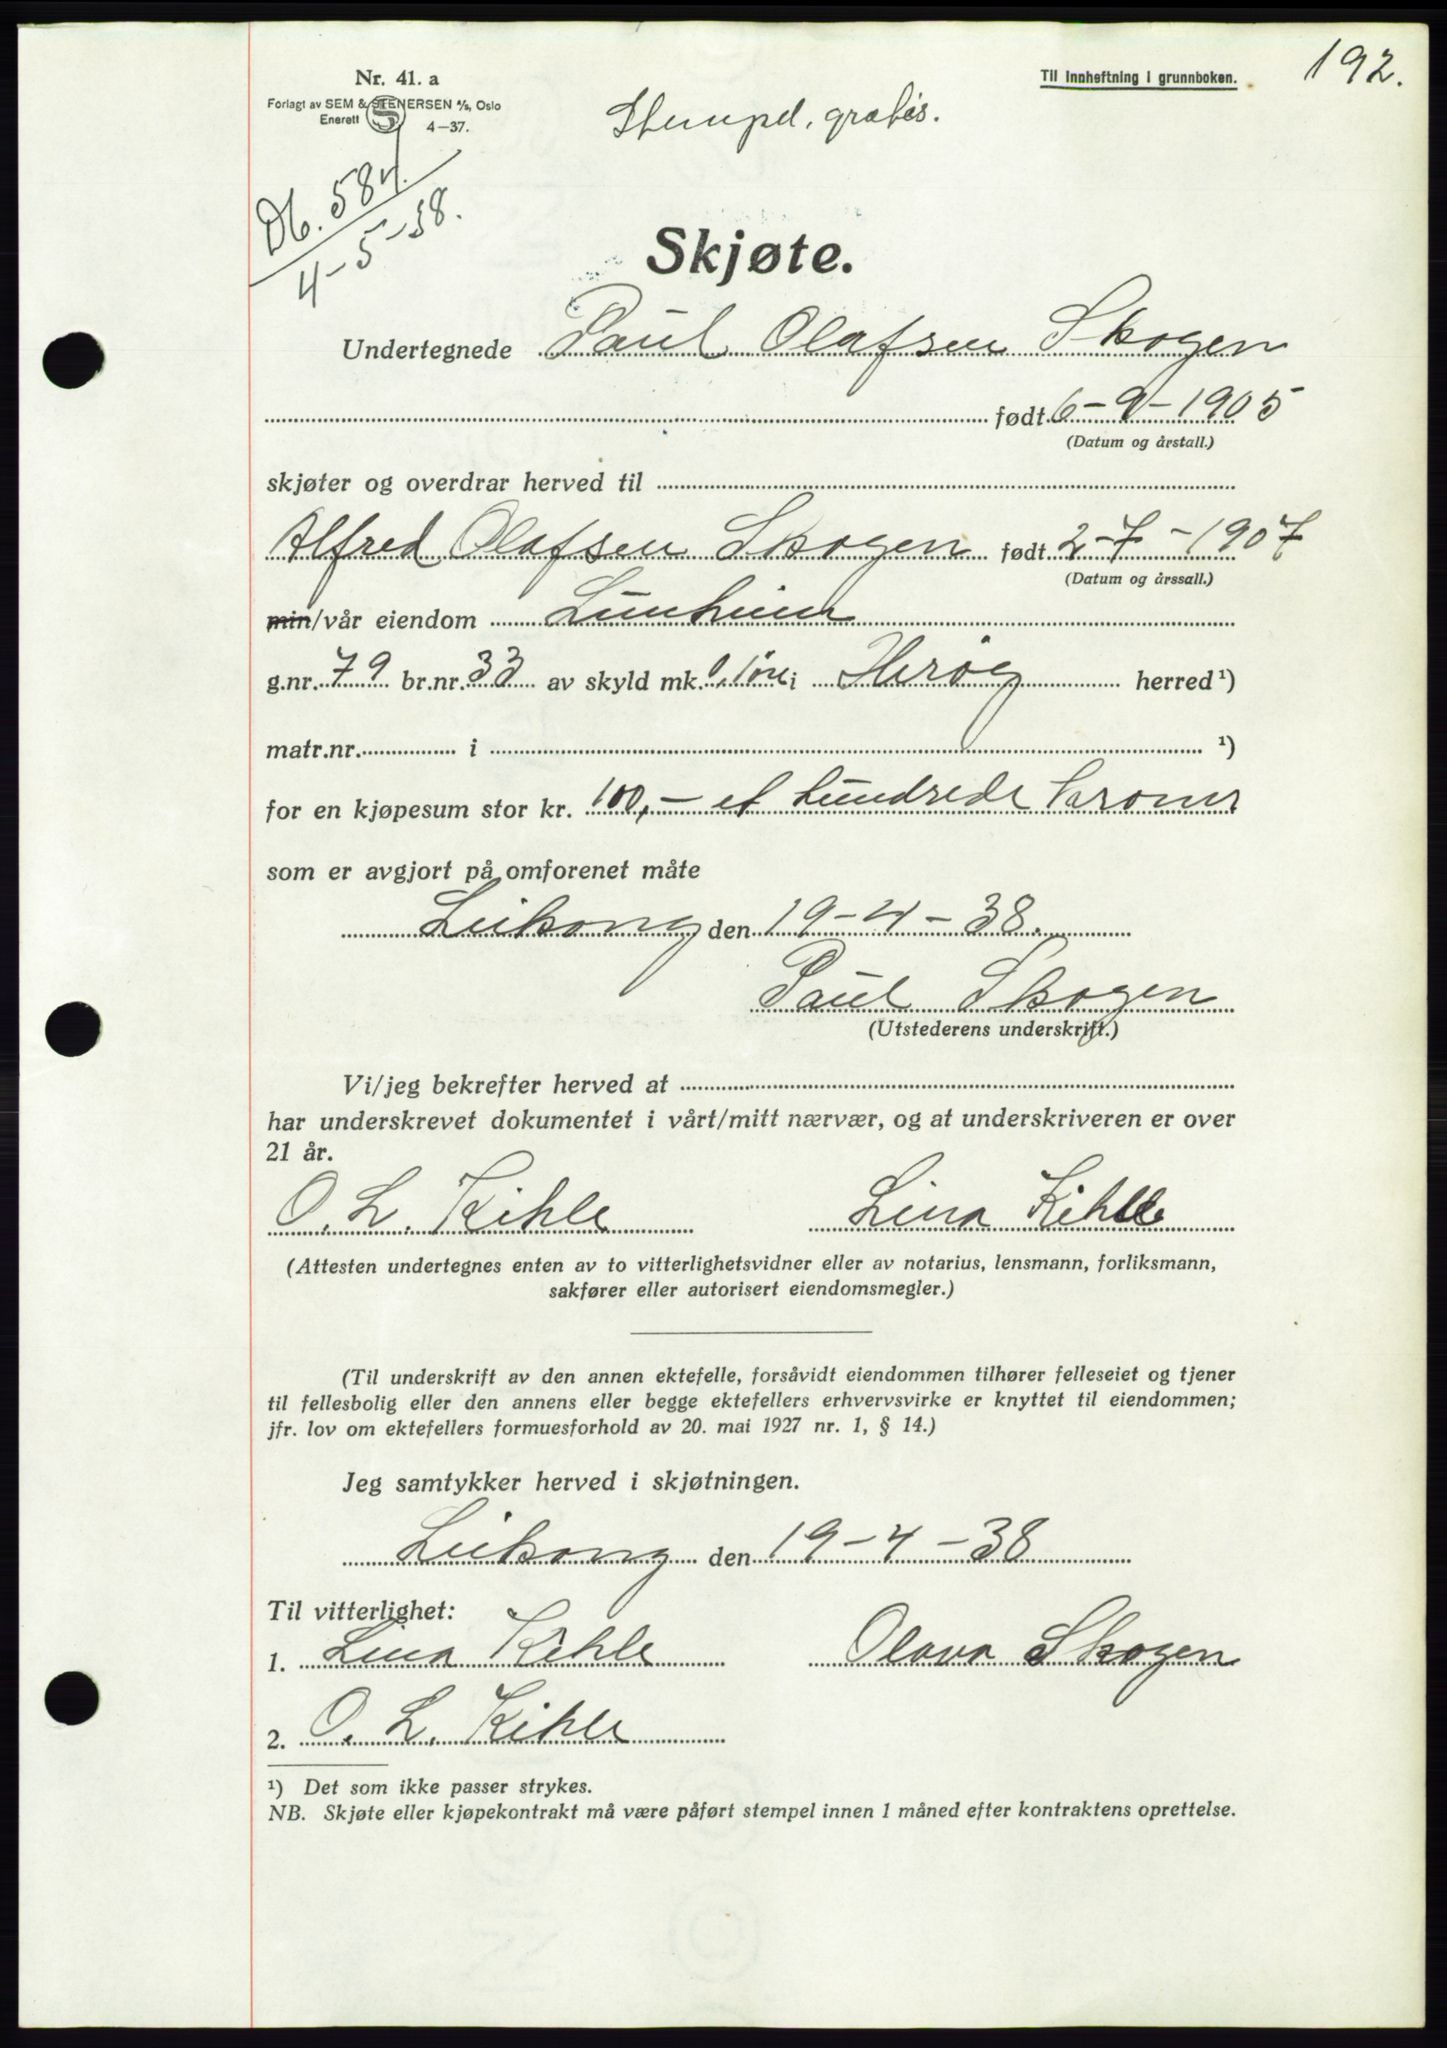 192.
Nr. 41. a
Til innheftning i grunnboken.
Forlagt av SEM & STENERSEN A/S, Oslo
Enerett 4—37.
Stempel, gratis.
Db. 584.
4-5-38.
Skjøte.
Undertegnede Paul Olafsen Skogen
født 6-9-1905
(Datum og årstall.)
skjøter og overdrar herved til
Alfred Olafsen Skogen født 2-7-1907
(Datum og årssall.)
min/vår eiendom
g.nr. 79 br.nr. 33 av skyld mk. 0,1 øre i Herøy herred ¹)
matr.nr. i ¹)
for en kjøpesum stor kr. 100,- et hundrede kroner
som er avgjort på omforenet måte
Leikong den 19-4-38.
Paul Skogen
(Utstederens underskrift.)
Vi/jeg bekrefter herved at
har underskrevet dokumentet i vårt/mitt nærvær, og at underskriveren er over
21 år.
O. L. Kihle Lina Kihle
(Attesten undertegnes enten av to vitterlighetsvidner eller av notarius, lensmann, forliksmann,
sakfører eller autorisert eiendomsmegler.)
(Til underskrift av den annen ektefelle, forsåvidt eiendommen tilhører felleseiet og tjener
til fellesbolig eller den annens eller begge ektefellers erhvervsvirke er knyttet til eiendommen;
jfr. lov om ektefellers formuesforhold av 20. mai 1927 nr. 1, § 14.)
Jeg samtykker herved i skjøtningen.
Leikong den 19-4-38
Til vitterlighet:
1. Lina Kihle Olava Skogen
2. O. L. Kihle
¹) Det som ikke passer strykes.
NB. Skjøte eller kjøpekontrakt må være påført stempel innen 1 måned efter kontraktens oprettelse.